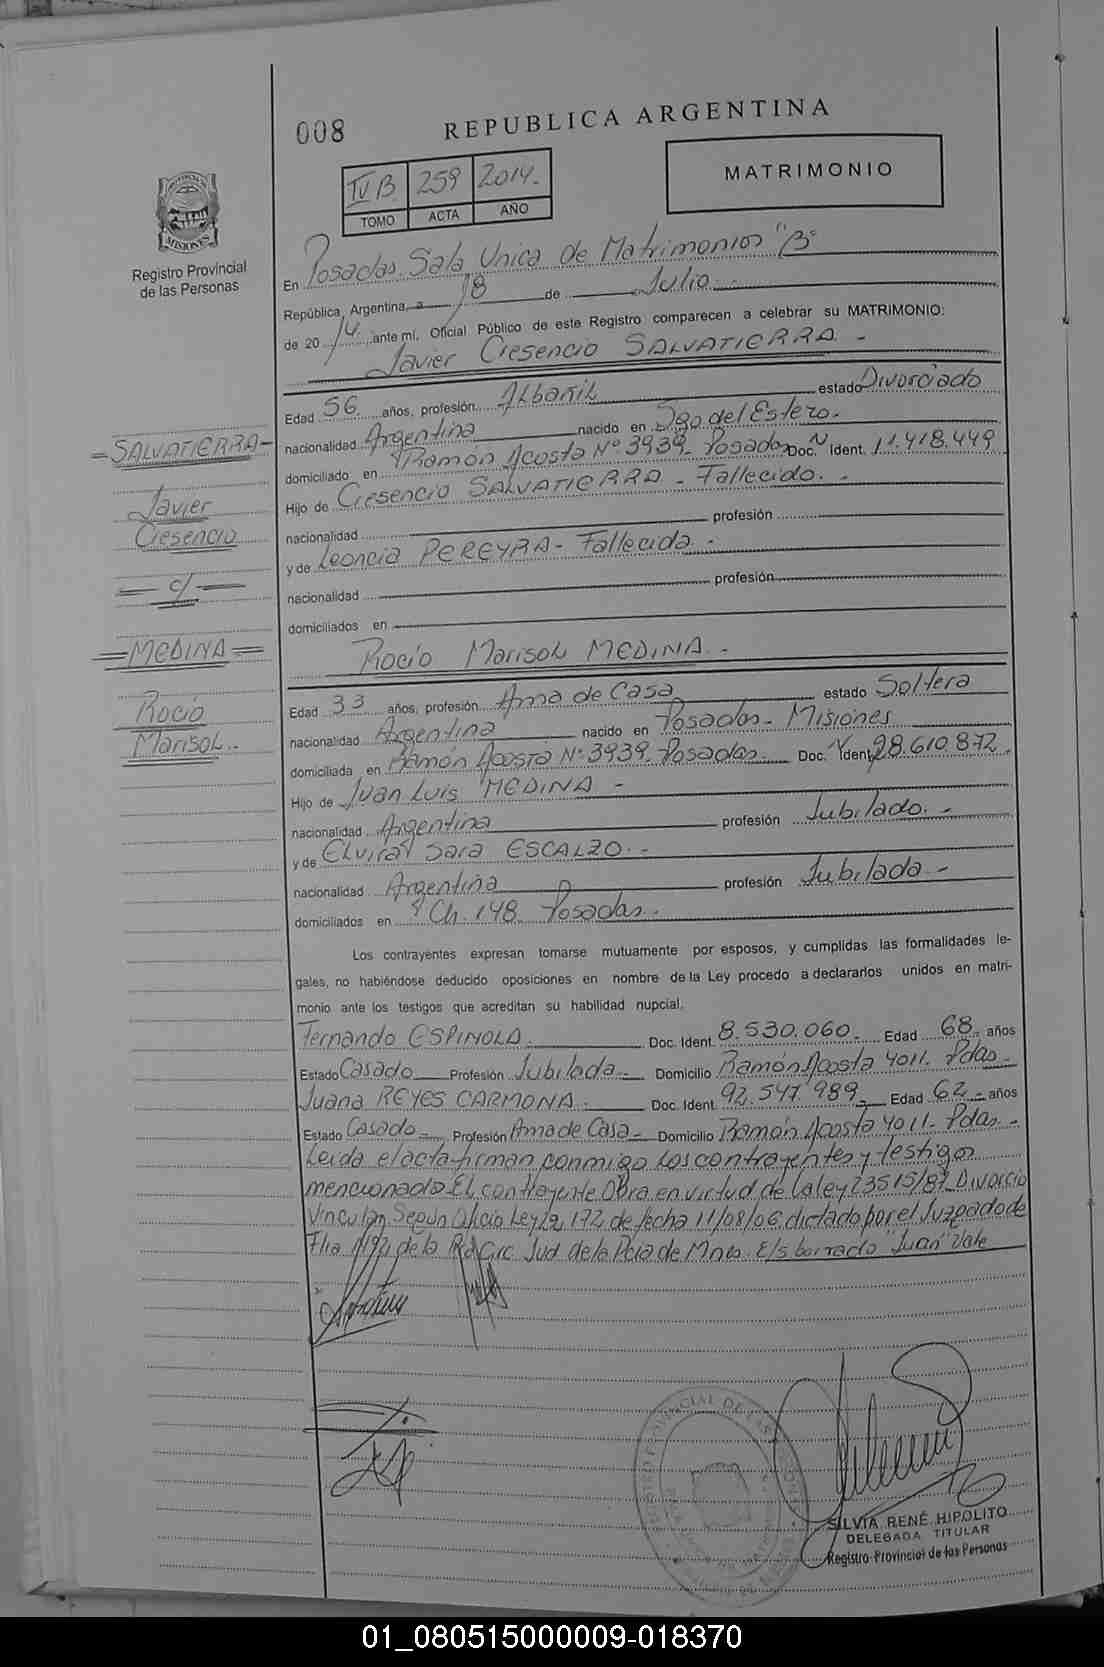 008
REPUBLICA ARGENTINA
IV B 259 2014.-
TOMO ACTA AÑO
MATRIMONIO
PROVINCIA DE MISIONES
Registro Provincial
de las Personas
En Posadas. Sala Unica de Matrimonios "B"
República, Argentina, a 18 de Julio.-
de 20 14 ,ante mí, Oficial Público de este Registro comparecen a celebrar su MATRIMONIO:
Javier Cresencio SALVATIERRA.-
Edad 56 años, profesión Albañil estado Divorciado
nacionalidad Argentina nacido en Sgo del Estero.
domiciliado en Ramón Acosta Nº 3939. Posadas Doc. Nº Ident. 11.418.449
Hijo de Cresencio SALVATIERRA - Fallecido.-
nacionalidad profesión
y de Leoncia PEREYRA - Fallecida.-
nacionalidad profesión
domiciliados en
=SALVATIERRA=
Javier
Cresencio
= c/ =
=MEDINA=
Rocio
Marisol.-
Rocio Marisol MEDINA.-
Edad 33 años, profesión Ama de Casa estado Soltera
nacionalidad Argentina nacido en Posadas - Misiones
domiciliada en Ramón Acosta Nº 3939. Posadas. Doc. Nº Ident. 28.610.872.
Hijo de Juan Luis MEDINA -
nacionalidad Argentina profesión Jubilado.-
y de Elvira Sara ESCALZO.-
nacionalidad Argentina profesión Jubilada.-
domiciliados en Ch. 148. Posadas.
Los contrayentes expresan tomarse mutuamente por esposos, y cumplidas las formalidades le-
gales, no habiéndose deducido oposiciones en nombre de la Ley procedo a declararlos unidos en matri-
monio ante los testigos que acreditan su habilidad nupcial.
Fernando ESPINOLA. Doc. Ident. 8.530.060. Edad 68 años
Estado Casado Profesión Jubilada Domicilio Ramón Acosta 4011. Pdas.-
Juana REYES CARMONA. Doc. Ident. 92.547.989 Edad 62 años
Estado Casado Profesión Ama de Casa Domicilio Ramón Acosta 4011.- Pdas.-
Leida el acta firman conmigo los contrayentes y testigos
mencionado El contrayente Obra en virtud de la ley 23515/87. Divorcio
Vincular Según Oficio Ley 22.172 de fecha 11/08/06, dictado por el Juzgado de
Flia Nº2 de la Circ. Jud. de la Pcia de Mnes. E/s borrado "Juan" Vale
SILVIA RENÉ HIPOLITO
DELEGADA TITULAR
Registro Provincial de las Personas
01_080515000009-018370